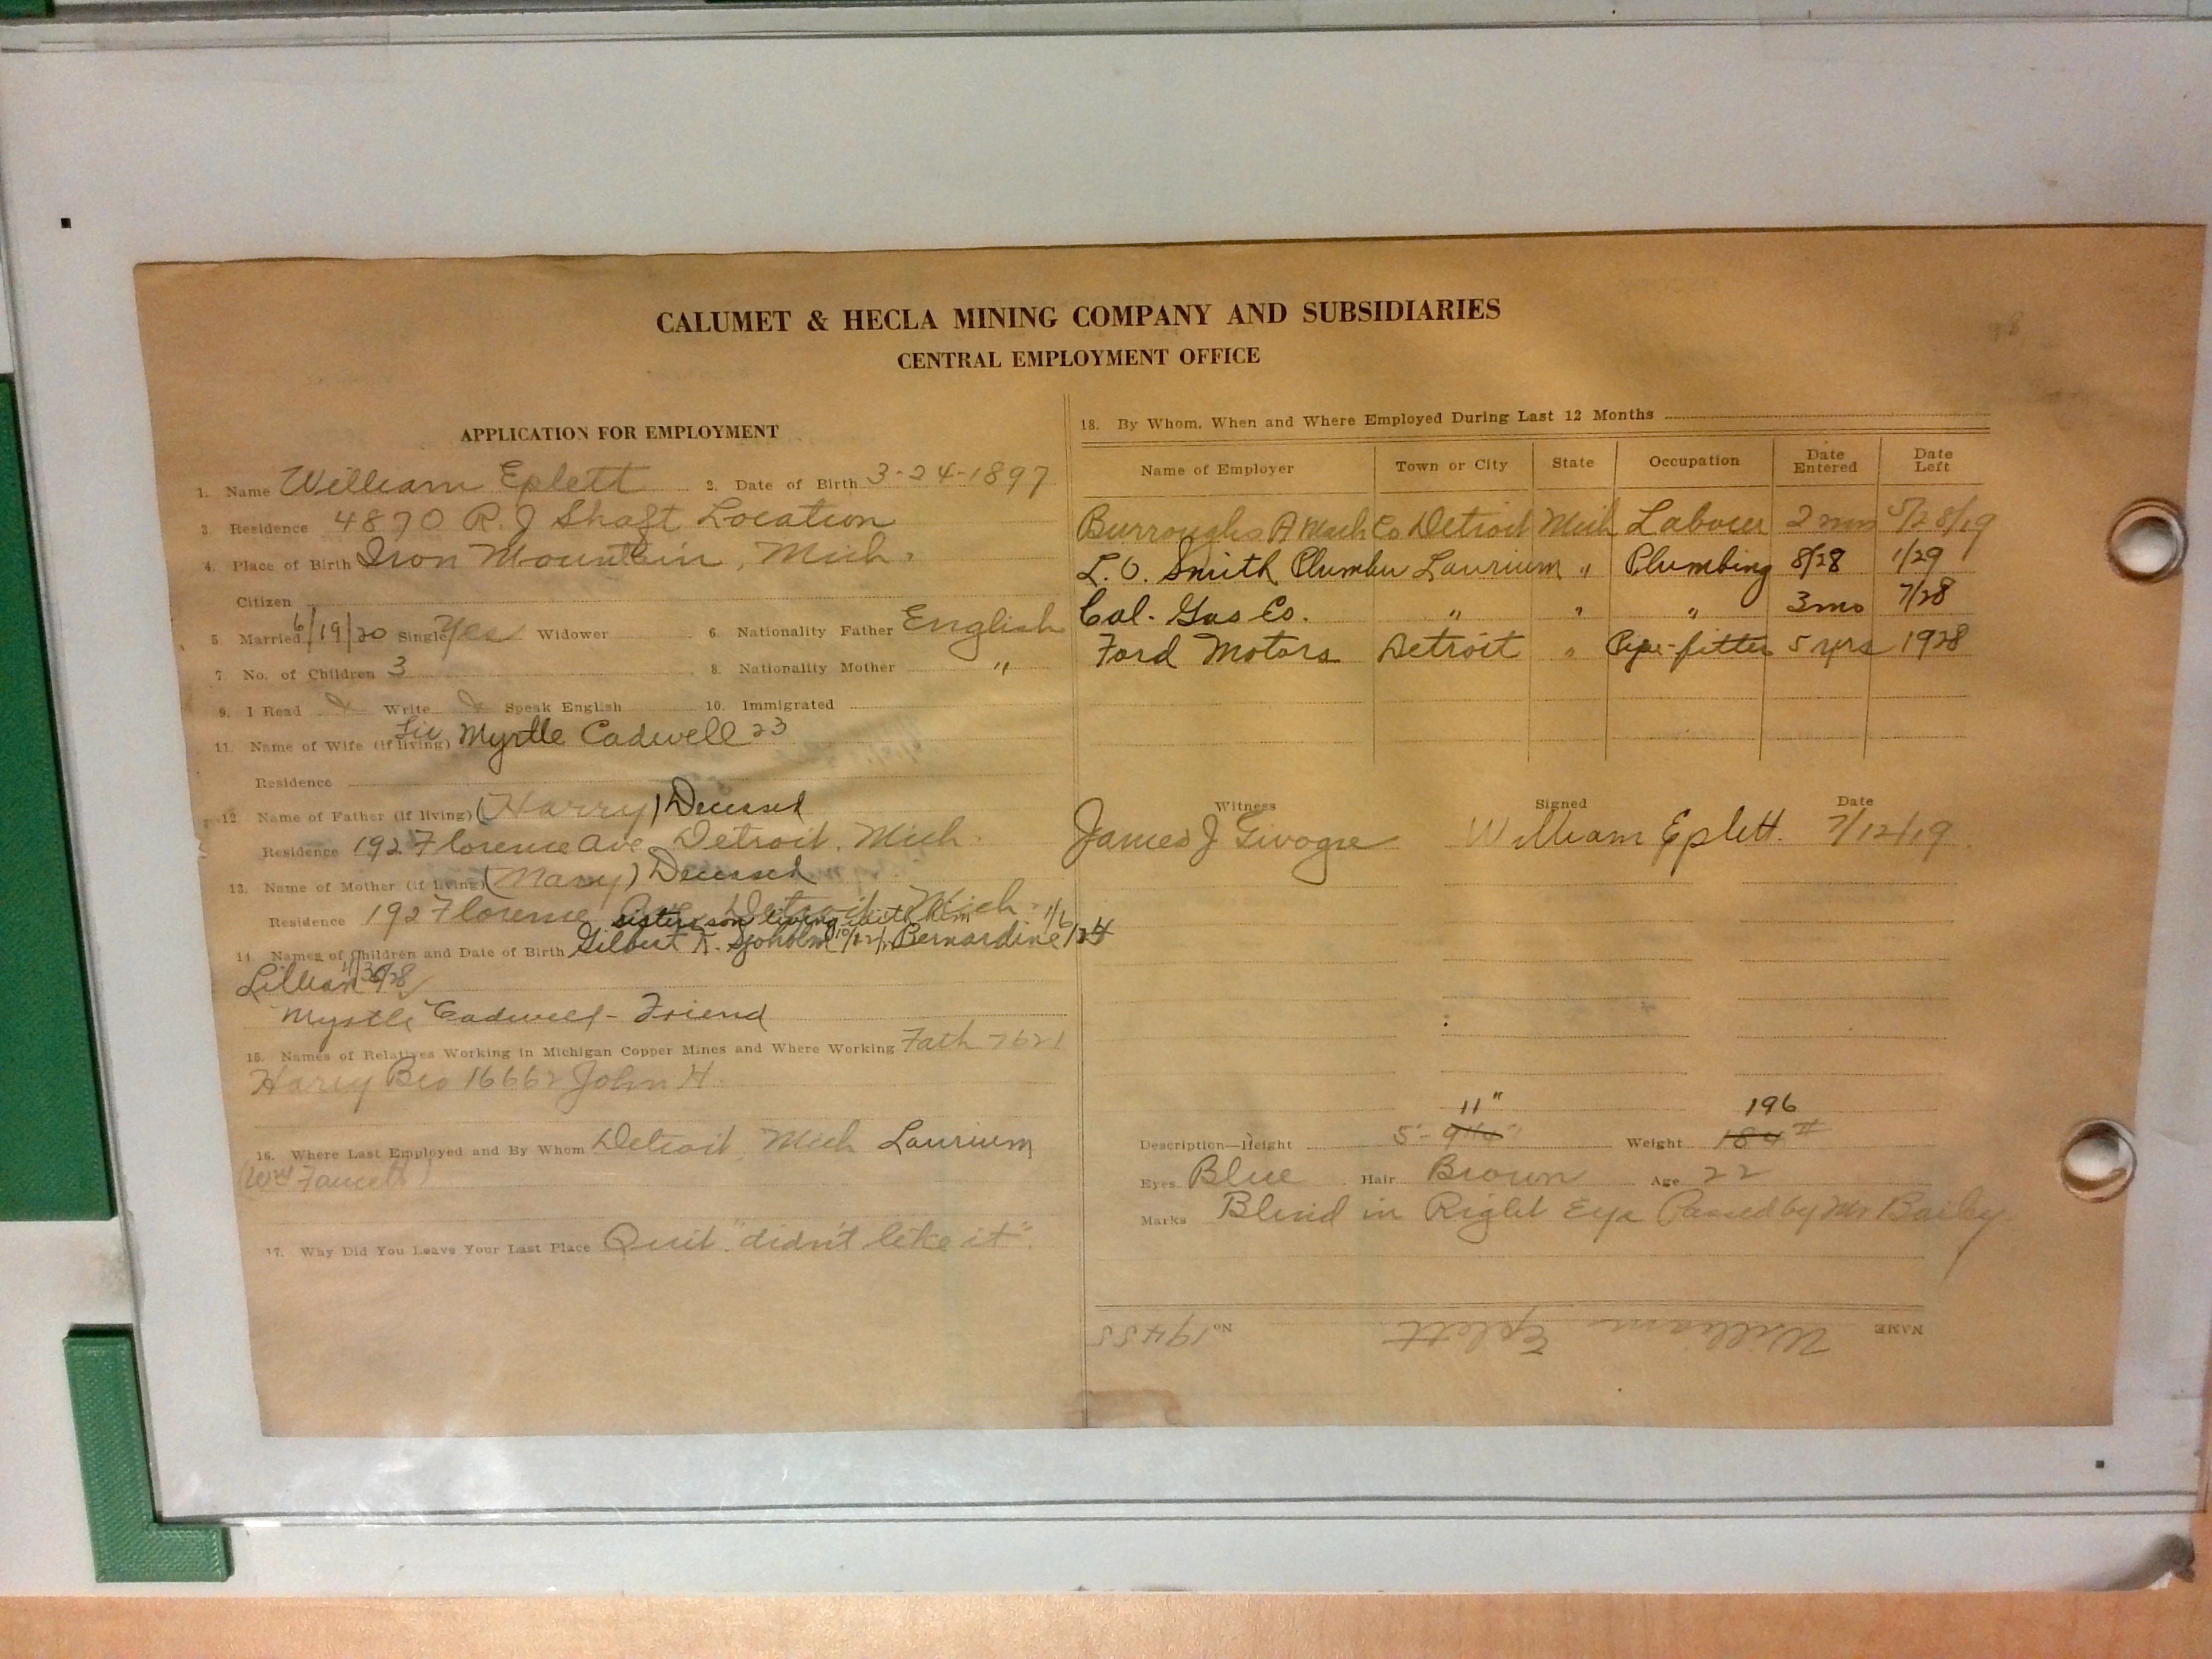 CALUMET & HECLA MINING COMPANY AND SUBSIDIARIES
CENTRAL EMPLOYMENT OFFICE
APPLICATION FOR EMPLOYMENT
1. Name William Eplett 2. Date of Birth 3-24-1897
3. Residence 4870 R.J Shaft Location
4. Place of Birth Iron Mountain, Mich.
Citizen
5. Married 6/19/20 Single Yes Widower 6. Nationality Father English
7. No. of Children 3 8. Nationality Mother "
9. I Read Write Speak English 10. Immigrated
11. Name of Wife (if living) Myrtle Cadwell 23
Residence
12. Name of Father (if living) (Harry) Decesed
Residence 192 Florence Ave Detroit, Mich.
13. Name of Mother (if living) (Mary) Decesed
Residence 192 Florence Ave Detroit Mich.
sisters son living with him
14. Names of Children and Date of Birth Gilbert Sjoholm Bernardine 1/6/24
Lillian
Myrtle Cadwell - Friend
15. Names of Relatives Working in Michigan Copper Mines and Where Working Fath 7621
Harry Bro 16662 John H.
16. Where Last Employed and By Whom Detroit, Mich Laurium
17. Why Did You Leave Your Last Place Quit "didn't like it".
18. By Whom, When and Where Employed During Last 12 Months
Name of Employer Town or City State Occupation Date Entered Date Left
Burroughs A Mach Co Detroit Mich Laborer 2 mos 5/28/19
L.O. Smith Plumber Laurium " Plumbing 8/28 1/29
Cal. Gas Co. " " " 3 mo 7/28
Ford Motors Detroit " Pipe-fitter 5 yrs 1928
Witness Signed Date
James J William Eplett. 7/12/19
11" 196
Description—Height 5'- 9 1/4" Weight 184 #
Eyes Blue Hair Brown Age 22
Marks Blind in Right Eye Passed by Mr Bailey
NAME William Eplett No 19455